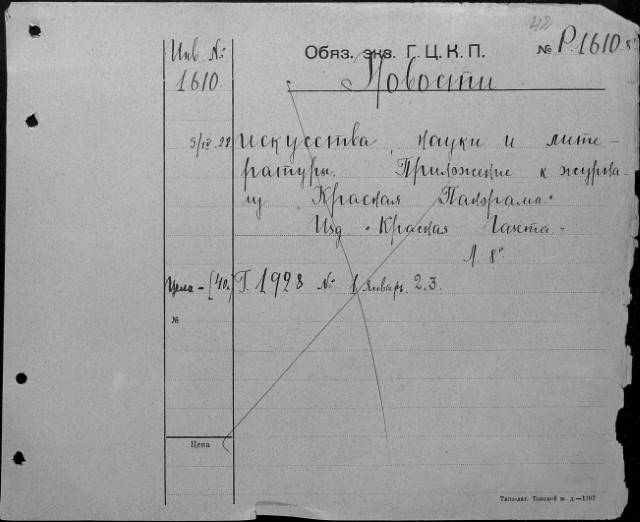 42
Инв. №
1610
Обяз. экз. Г. Ц. К. П.
№ Р.1610 8°
Новости
искусства, науки и лите-
ратуры. Приложение к журна-
лу Красная Панорама.
Изд. "Красная Газета"
Л 8°
Цена - [40.]
Г. 1928 № 1 январь. 2. 3.
№
Цена
Типо-лит.